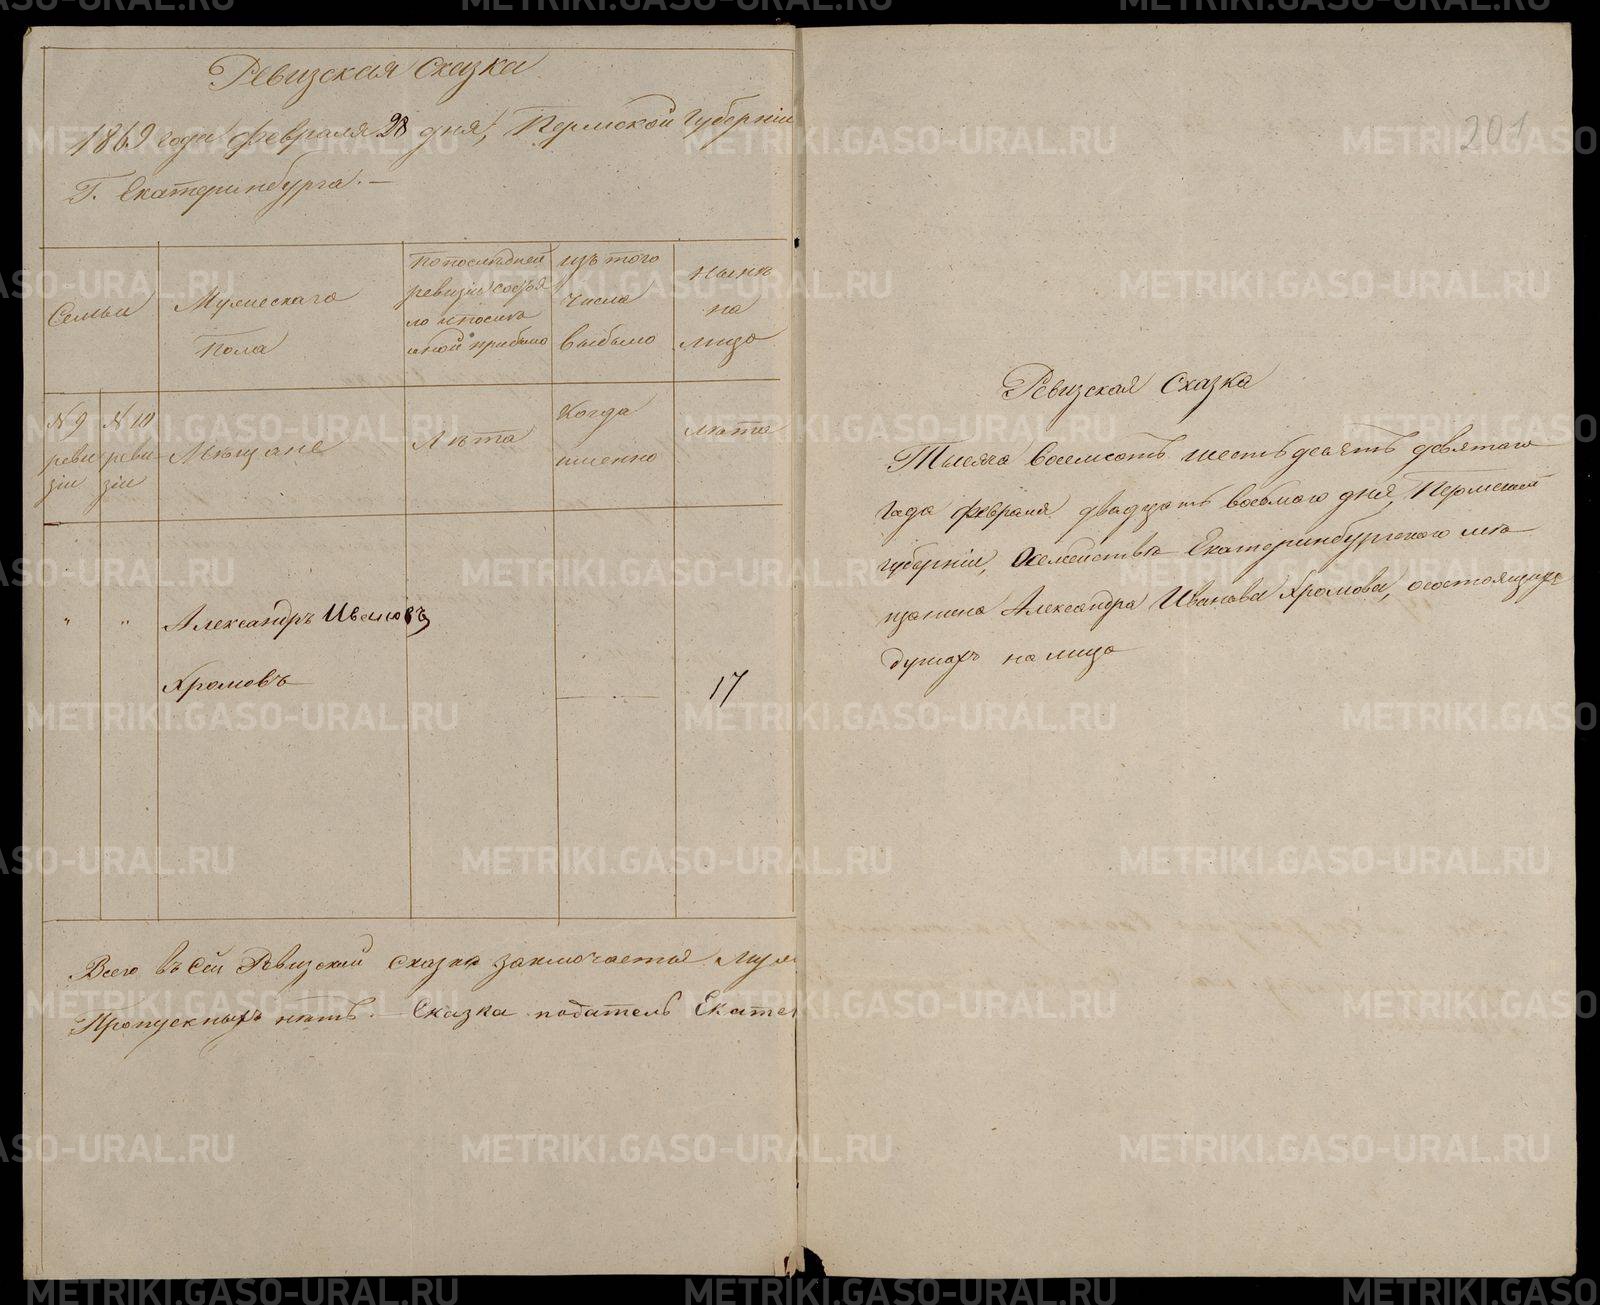 Ревизская Сказка
1869 года февраля 28 дня, Пермской Губерніи
Г. Екатеринбурга. —
Семьи
Мужескаго
Пола
По последней
ревизіи состоя
ло и после
оной прибыло
изъ того
числа
выбыло
ныне
на
лицо
№ 9
реви
зіи
№ 10
реви
зіи
Мещане
Лета
Когда
именно
лета
" " Александръ Ивановъ
Хромовъ 17
Всего въ сей Ревизской сказке заключается Муж
Пропускныхъ нетъ. — Сказка податель Екате
201
Ревизская Сказка
Тысяча восемсотъ шестьдесятъ девятаго
года февраля двадцать восьмого дня, Пермской
губерніи, О семействе Екатеринбургского ме
щанина Александра Иванова Хромова, о состоящихъ
душахъ на лицо
METRIKI.GASO-URAL.RU